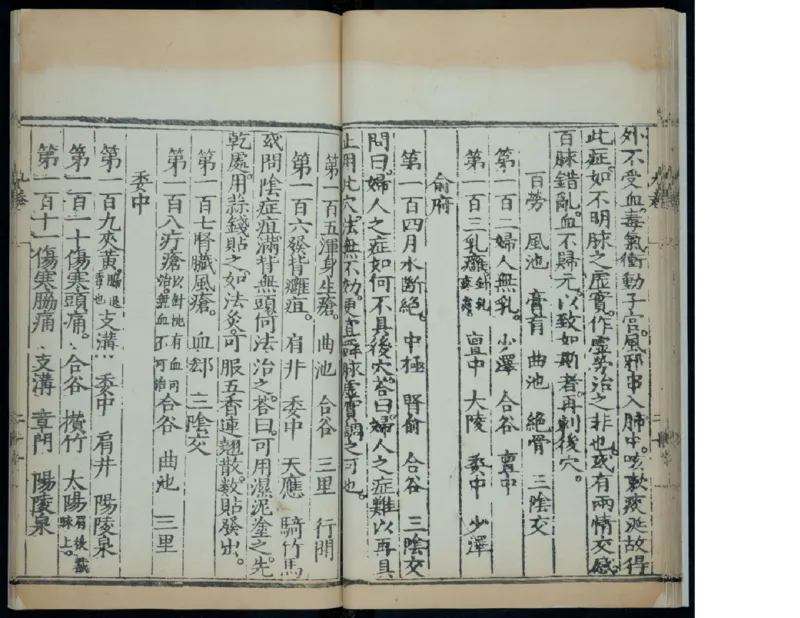 外不受血毒氣衝動子宮風邪串入肺中咳嗽痰涎故得
此症如不明脉之虛實作虛勞治之非也或有兩情交感
百脉錯亂血不歸元以致如斯者再刺後穴
百勞 風池 膏肓 曲池 絶骨 三陰交
第一百二婦人無乳 少澤 合谷 膻中
第一百三乳癰 膻中 大陵 委中 少澤
俞府
第一百四月水斷絶 中極 腎俞 合谷 三陰交
問曰婦人之症如何不具後穴答曰婦人之症難以再具
止用此穴法無不効更宜辟脉虛實調之可也
第一百五渾身生瘡 曲池 合谷 三里 行間
第一百六發背癰疽 肩井 委中 天應 騎竹馬
或問陰症疽滿背無頭何法治之荅曰可用濕泥塗之先
乾處用蒜錢貼之如法灸可服五香連翹散數貼發出
第一百七腎臓風瘡 血郄 三陰交
第一百八疔瘡以針挑有血可治無血不可治合谷 曲池 三里
委中
第一百九夾黃脇退毒也支溝 委中 肩井 陽陵泉
第一百一十傷寒頭痛 合谷 攅竹 太陽眉後紫脉上
第一百十一傷寒脇痛 支溝 章門 陽陵泉